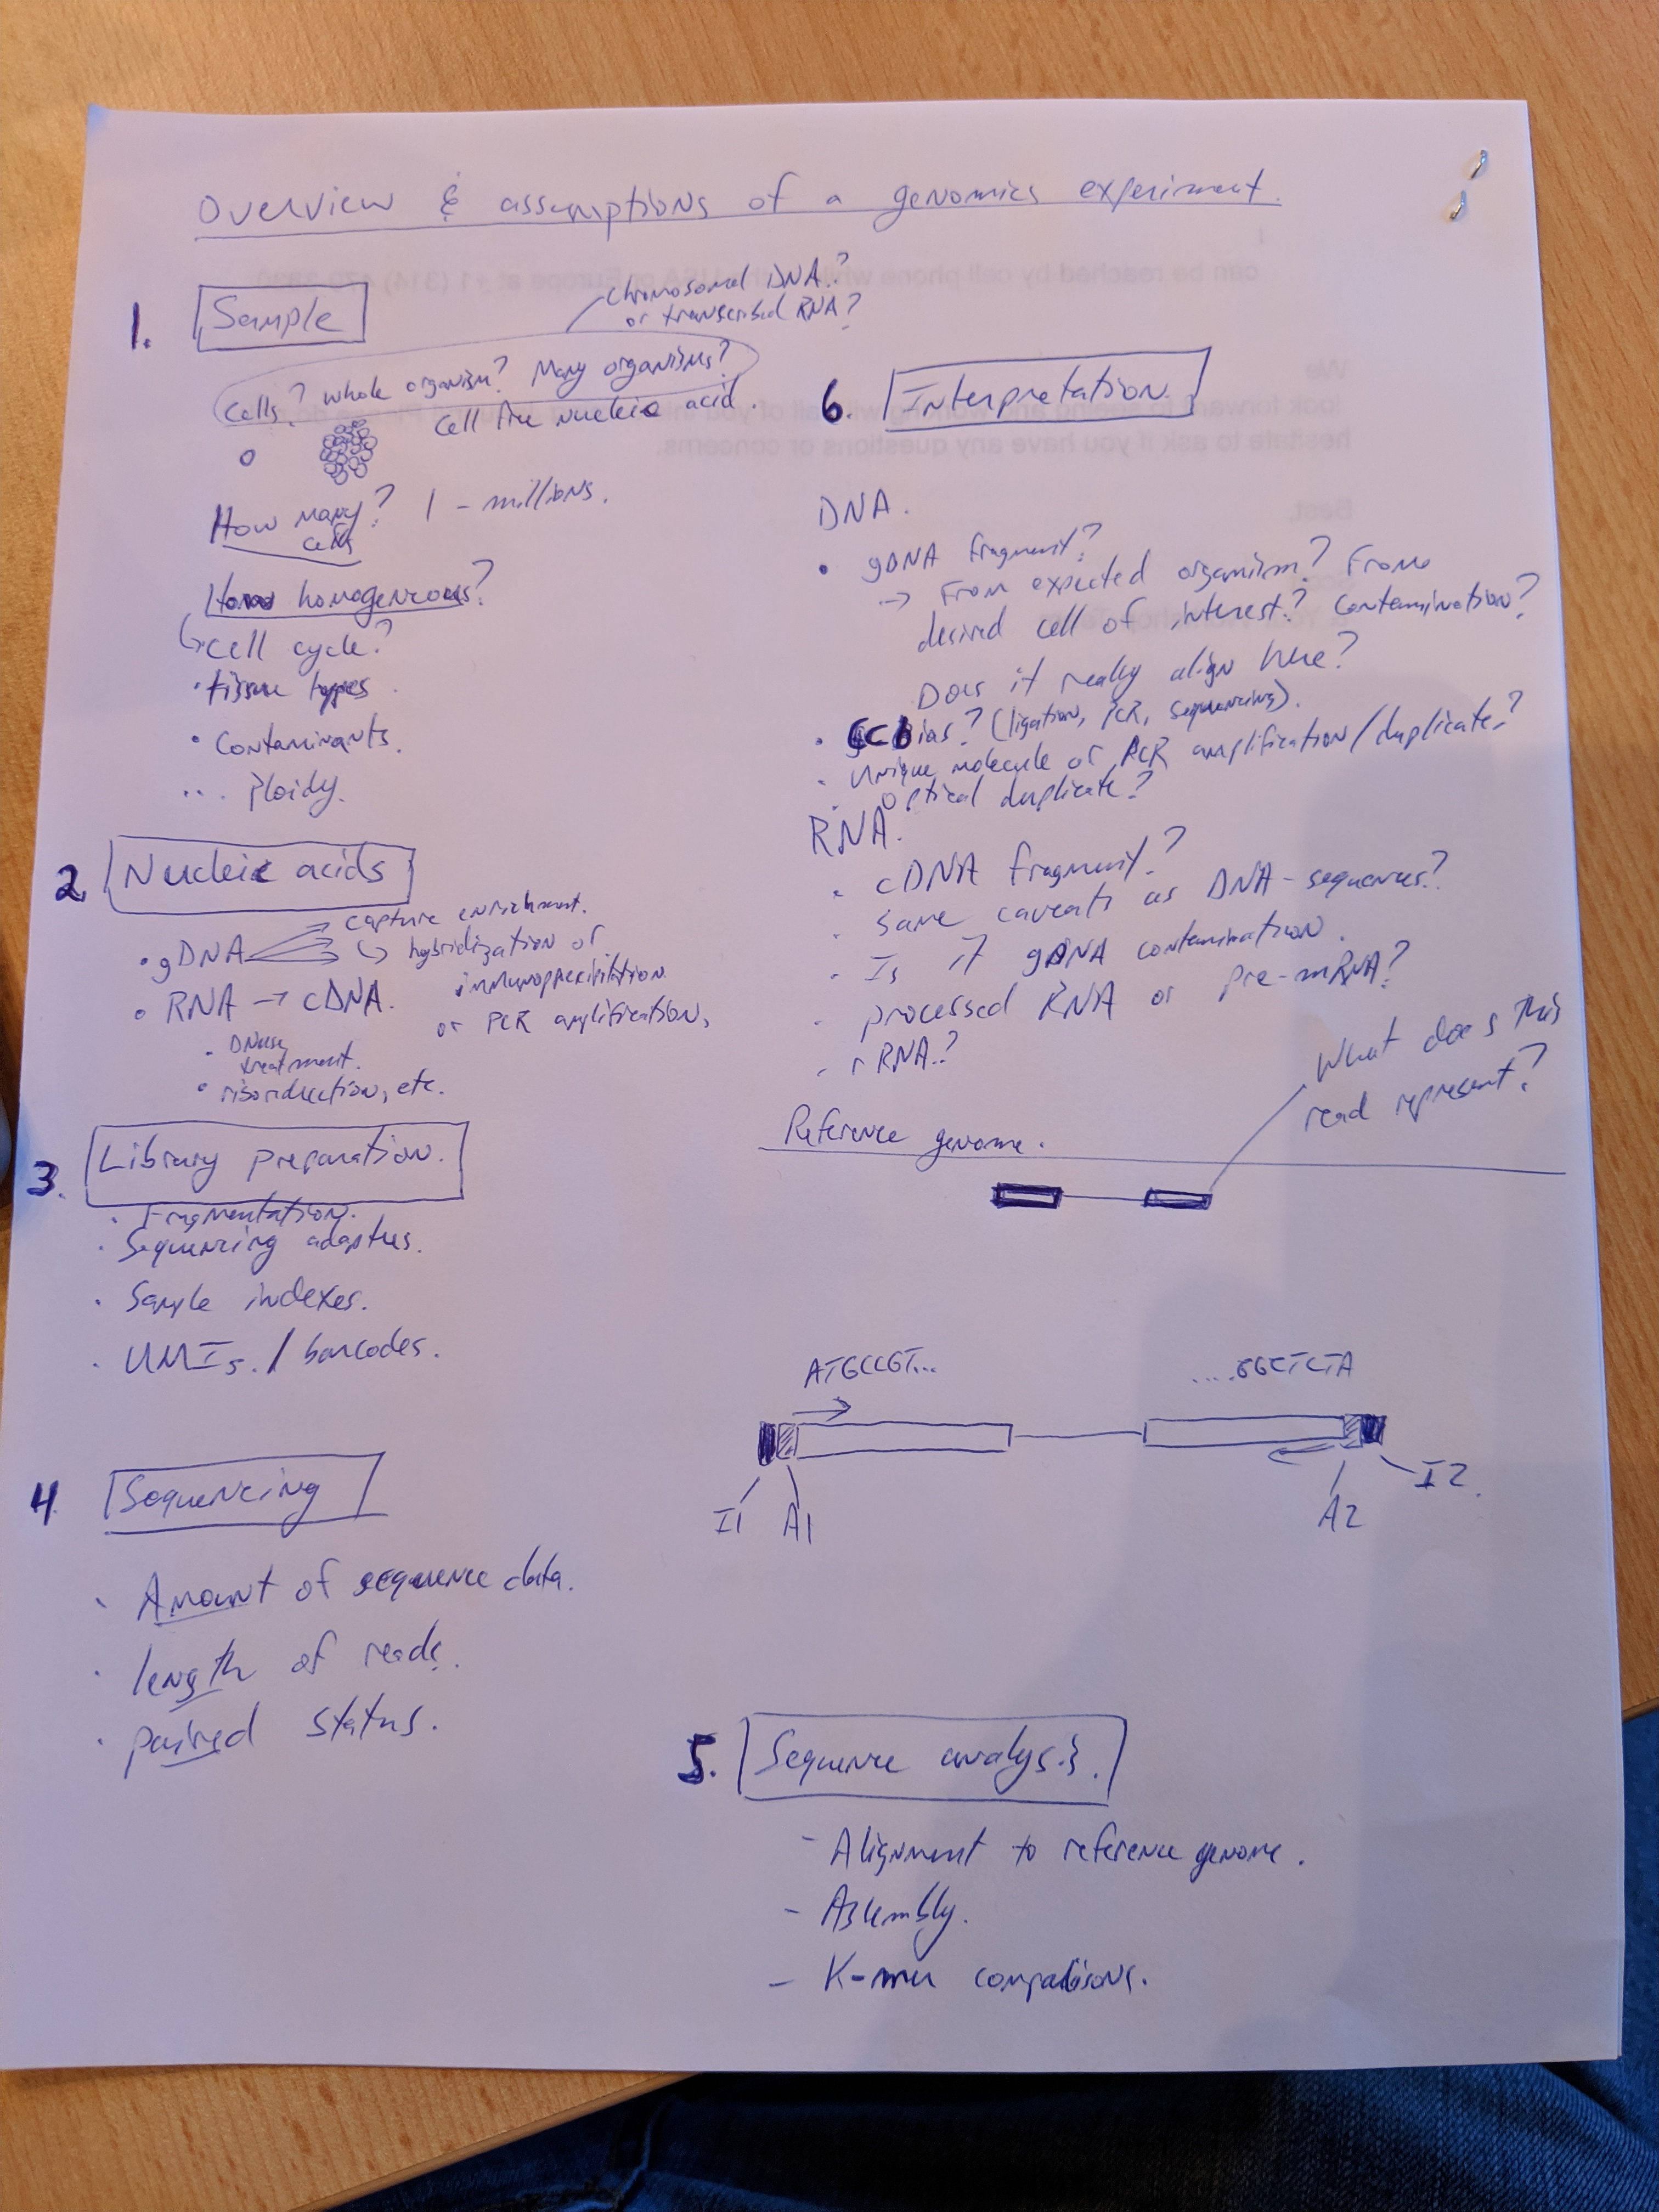 Overview & assumptions of a genomics experiment.
1. Sample
chromosomal DNA?
or transcribed RNA?
Cells? whole organism? Many organisms?
Cell free nucleic acid.
How many? 1 - millions.
cells
How homogeneous?
cell cycle?
· tissue types.
· Contaminants.
... ploidy.
2. Nucleic acids
· gDNA
capture enrichment.
hybridization or
immunoprecipitation
or PCR amplification,
· RNA → cDNA.
· DNase
treatment.
· riboreduction, etc.
3. Library preparation.
· Fragmentation.
· Sequencing adapters.
· Sample indexes.
· UMIs. / barcodes.
4. Sequencing
· Amount of sequence data.
· length of reads.
· paired status.
5. Sequence analysis.
- Alignment to reference genome.
- Assembly.
- K-mer comparisons.
6. Interpretation.
DNA.
· gDNA fragment?
→ From expected organism? From
desired cell of interest? Contamination?
Does it really align here?
· GC bias? (ligation, PCR, sequencing).
· Unique molecule or PCR amplification/duplicate?
· optical duplicate?
RNA.
· cDNA fragment?
· same caveats as DNA-sequences?
· Is it gDNA contamination.
· processed RNA or pre-mRNA?
· rRNA?
What does this
read represent?
Reference genome.
ATGCCGT...
....GGCTCTA
I1 A1
A2 I2.